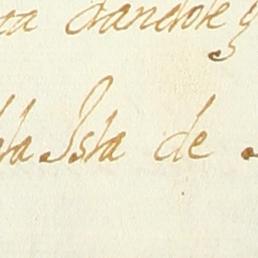 ta dandole y
ta Isla de